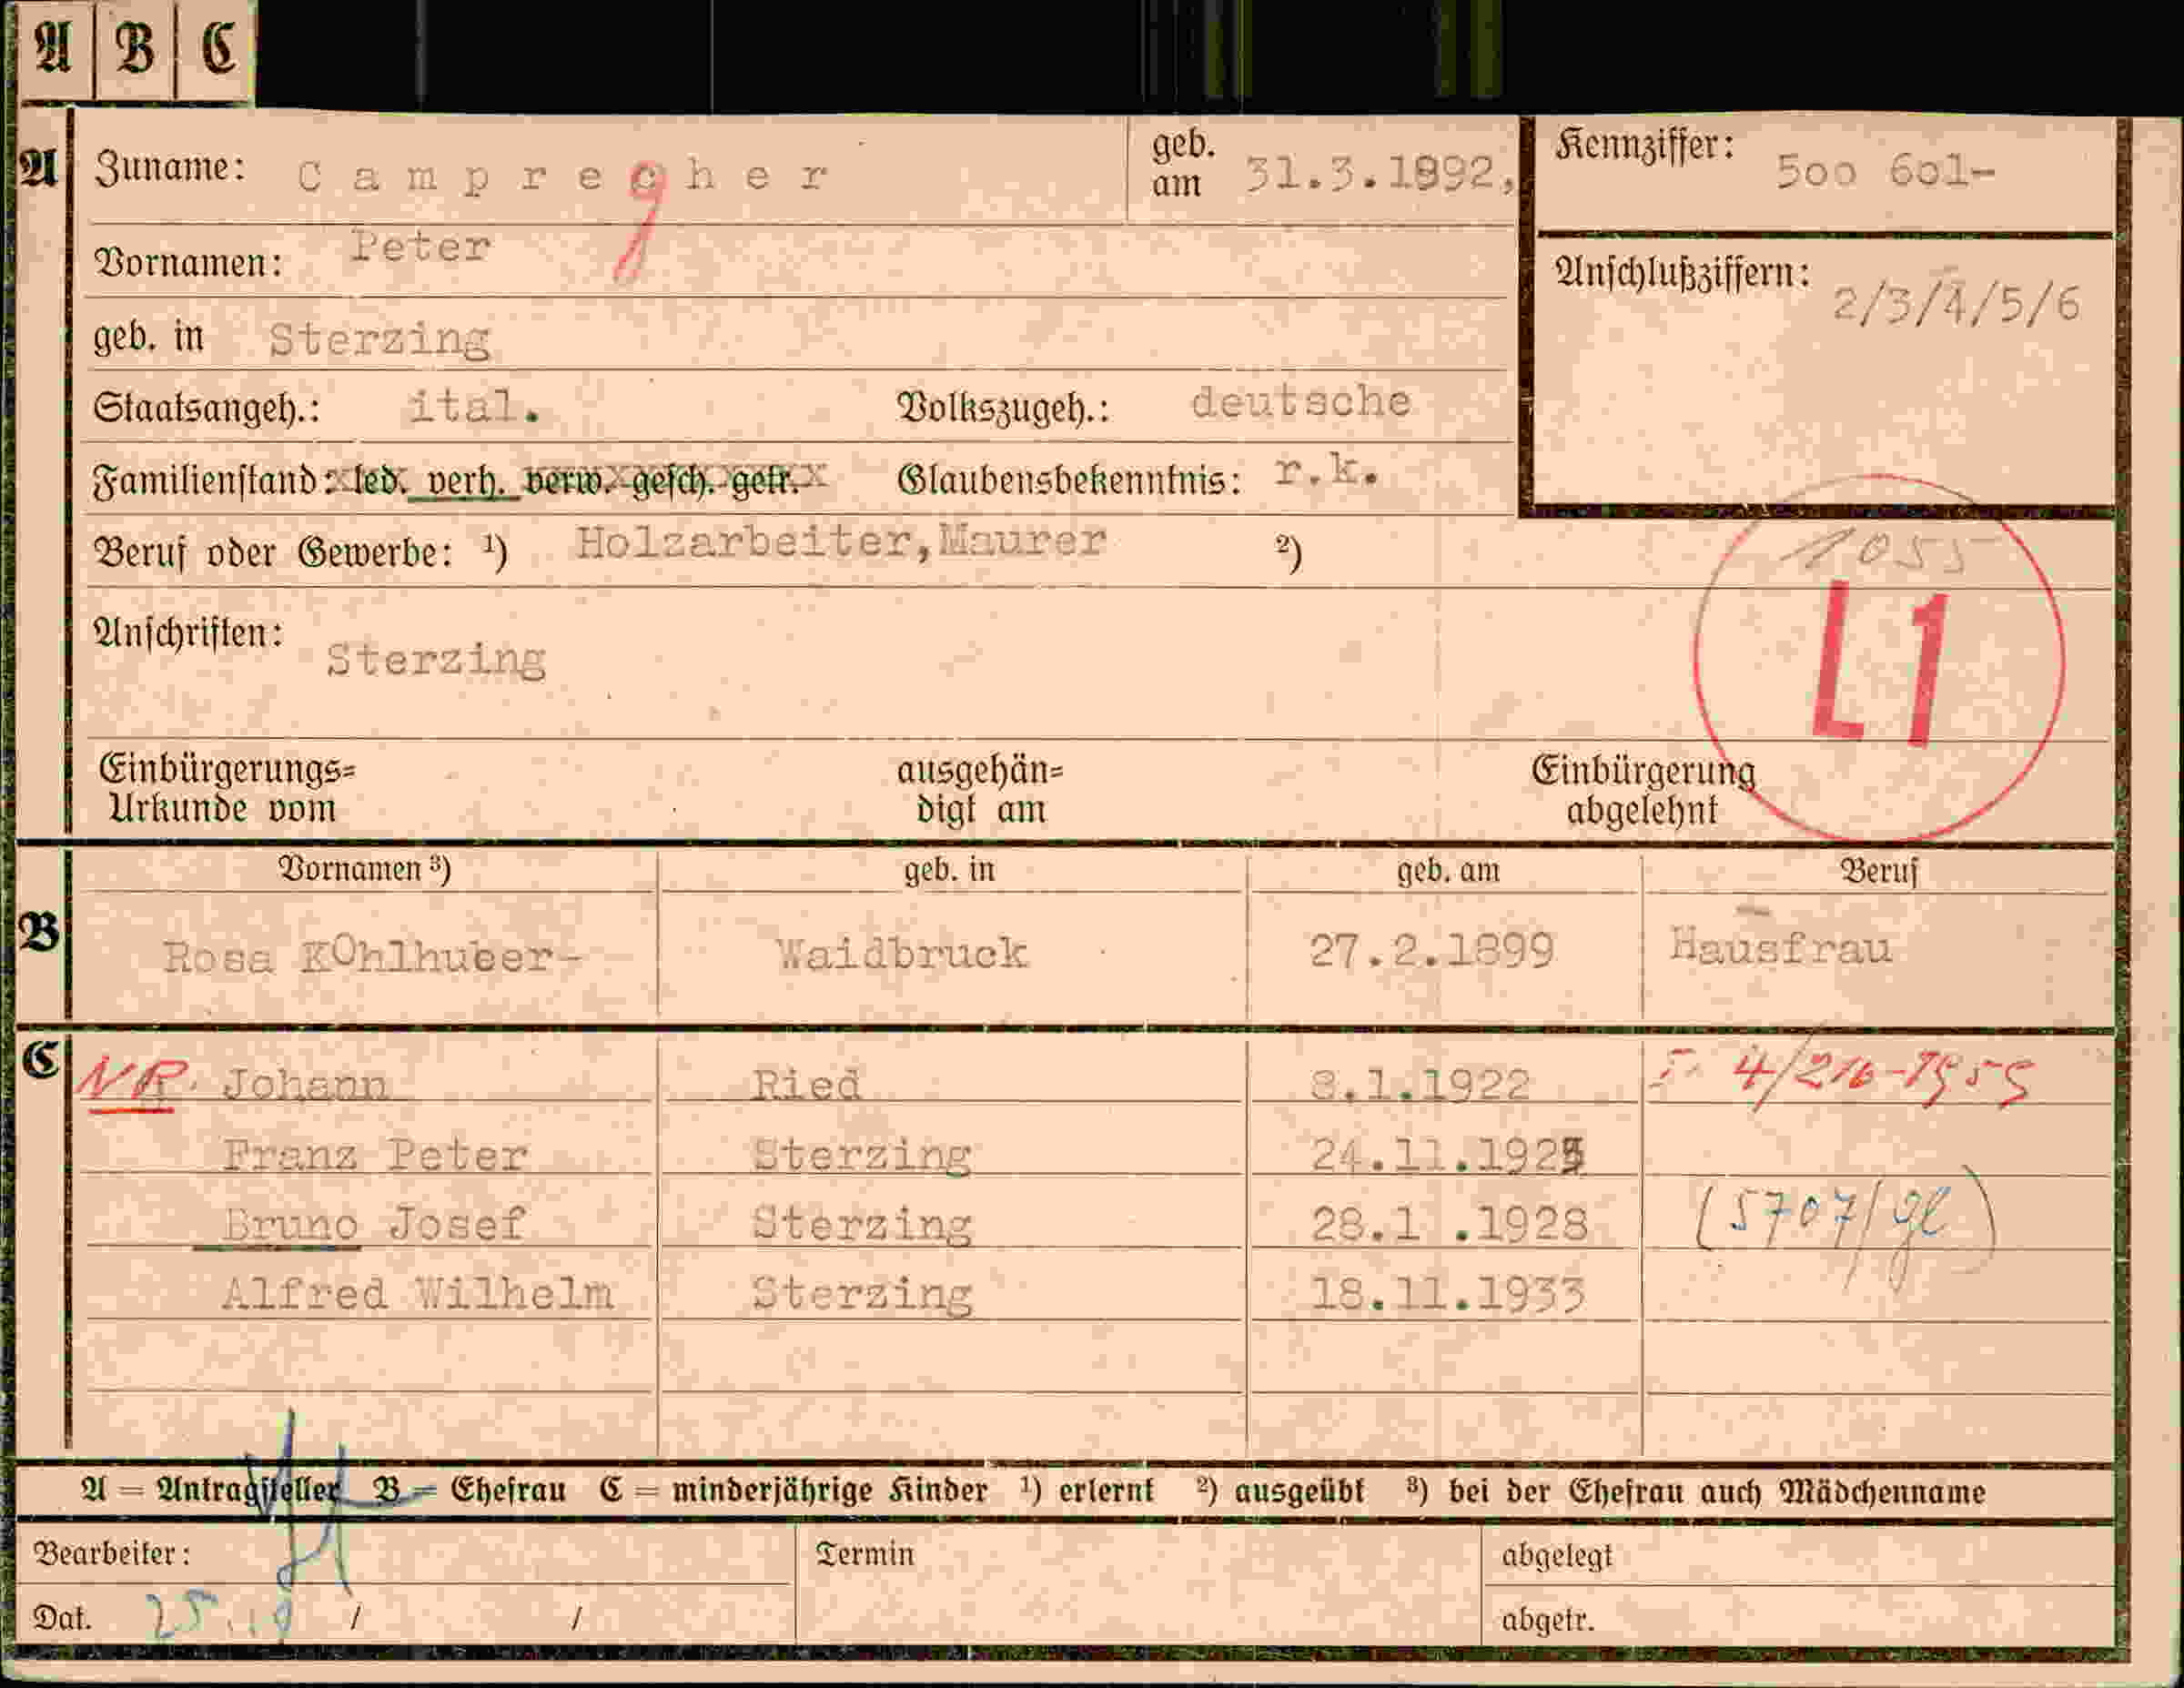 A B C
A Zuname: Camprecher geb. am 31.3.1892, Kennziffer: 500 601-
g
Vornamen: Peter
Anschlußziffern: 2/3/4/5/6
geb. in Sterzing
Staatsangeh.: ital. Volkszugeh.: deutsche
Familienstand: led. verh. verw. gesch. getr. Glaubensbekenntnis: r.k.
Beruf oder Gewerbe: ¹) Holzarbeiter, Maurer ²)
1055
L1
Anschriften: Sterzing
Einbürgerungs=
Urkunde vom
ausgehän=
digt am
Einbürgerung
abgelehnt
Vornamen ³) geb. in geb. am Beruf
B Rosa KOhlhuber- Waidbruck 27.2.1899 Hausfrau
C NR. Johann Ried 8.1.1922 4/210-1955
Franz Peter Sterzing 24.11.1925
Bruno Josef Sterzing 28.1 .1928 (5707/gl)
Alfred Wilhelm Sterzing 18.11.1933
A = Antragsteller B = Ehefrau C = minderjährige Kinder ¹) erlernt ²) ausgeübt ³) bei der Ehefrau auch Mädchenname
Bearbeiter: Termin abgelegt
Dat. 25.10 / / abgetr.